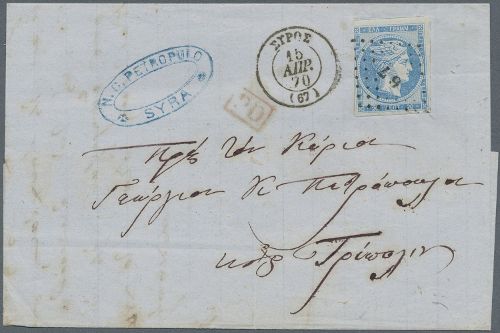 N. C. PETROPULO
SYRA
ΣΥΡΟΣ
15
ΑΠΡ.
70
(67)
PD
ΕΛΛ. ΓΡΑΜΜ.
67
Πρὸς τὸν Κύριον
Γεώργιον Κ Πετρόπουλον
Τρίπολιν